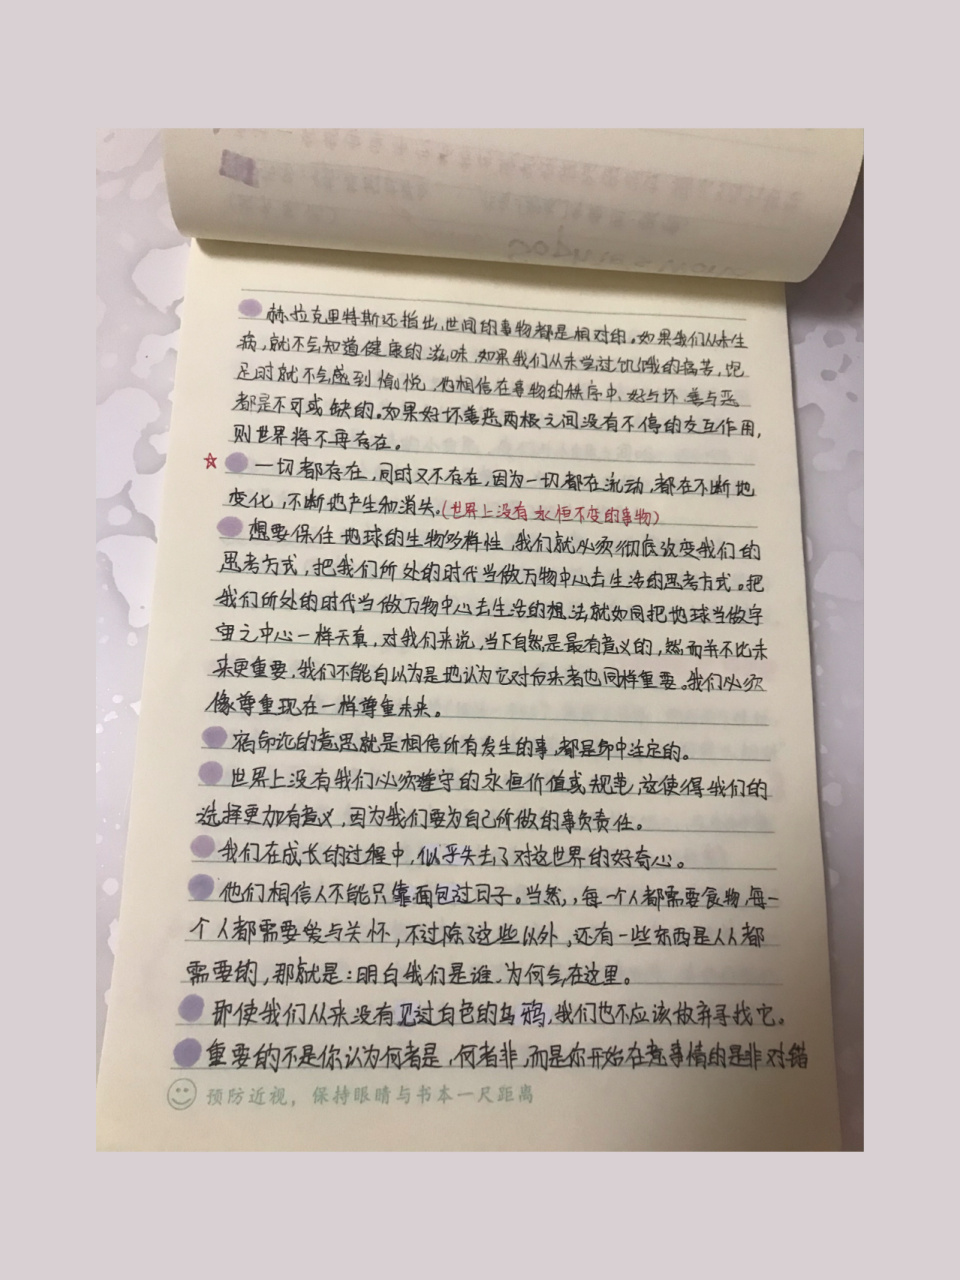 赫拉克里特斯还指出,世间的事物都是相对的。如果我们从未生
病,就不会知道健康的滋味,如果我们从未尝过饥饿的痛苦,饱
足时就不会感到愉悦,他相信在事物的秩序中,好与坏、善与恶
都是不可或缺的。如果好坏善恶两极之间没有不停的交互作用,
则世界将不再存在。
☆ 一切都存在,同时又不存在,因为一切都在流动,都在不断地
变化,不断地产生和消失。(世界上没有永恒不变的事物)
想要保住地球的生物多样性,我们就必须彻底改变我们的
思考方式,把我们所处的时代当做万物中心去生活的思考方式。把
我们所处的时代当做万物中心去生活的想法就如同把地球当做宇
宙之中心一样天真,对我们来说,当下自然是最有意义的,然而并不比未
来更重要,我们不能自以为是地认为它对后来者也同样重要。我们必须
像尊重现在一样尊重未来。
宿命论的意思就是相信所有发生的事,都是命中注定的。
世界上没有我们必须遵守的永恒价值或规范,这使得我们的
选择更加有意义,因为我们要为自己所做的事负责任。
我们在成长的过程中,似乎失去了对这世界的好奇心。
他们相信人不能只靠面包过日子。当然,,每一个人都需要食物,每一
个人都需要爱与关怀,不过除了这些以外,还有一些东西是人人都
需要的,那就是:明白我们是谁、为何会在这里。
即使我们从来没有见过白色的乌鸦,我们也不应该放弃寻找它。
重要的不是你认为何者是,何者非,而是你开始在意事情的是非对错
预防近视,保持眼睛与书本一尺距离